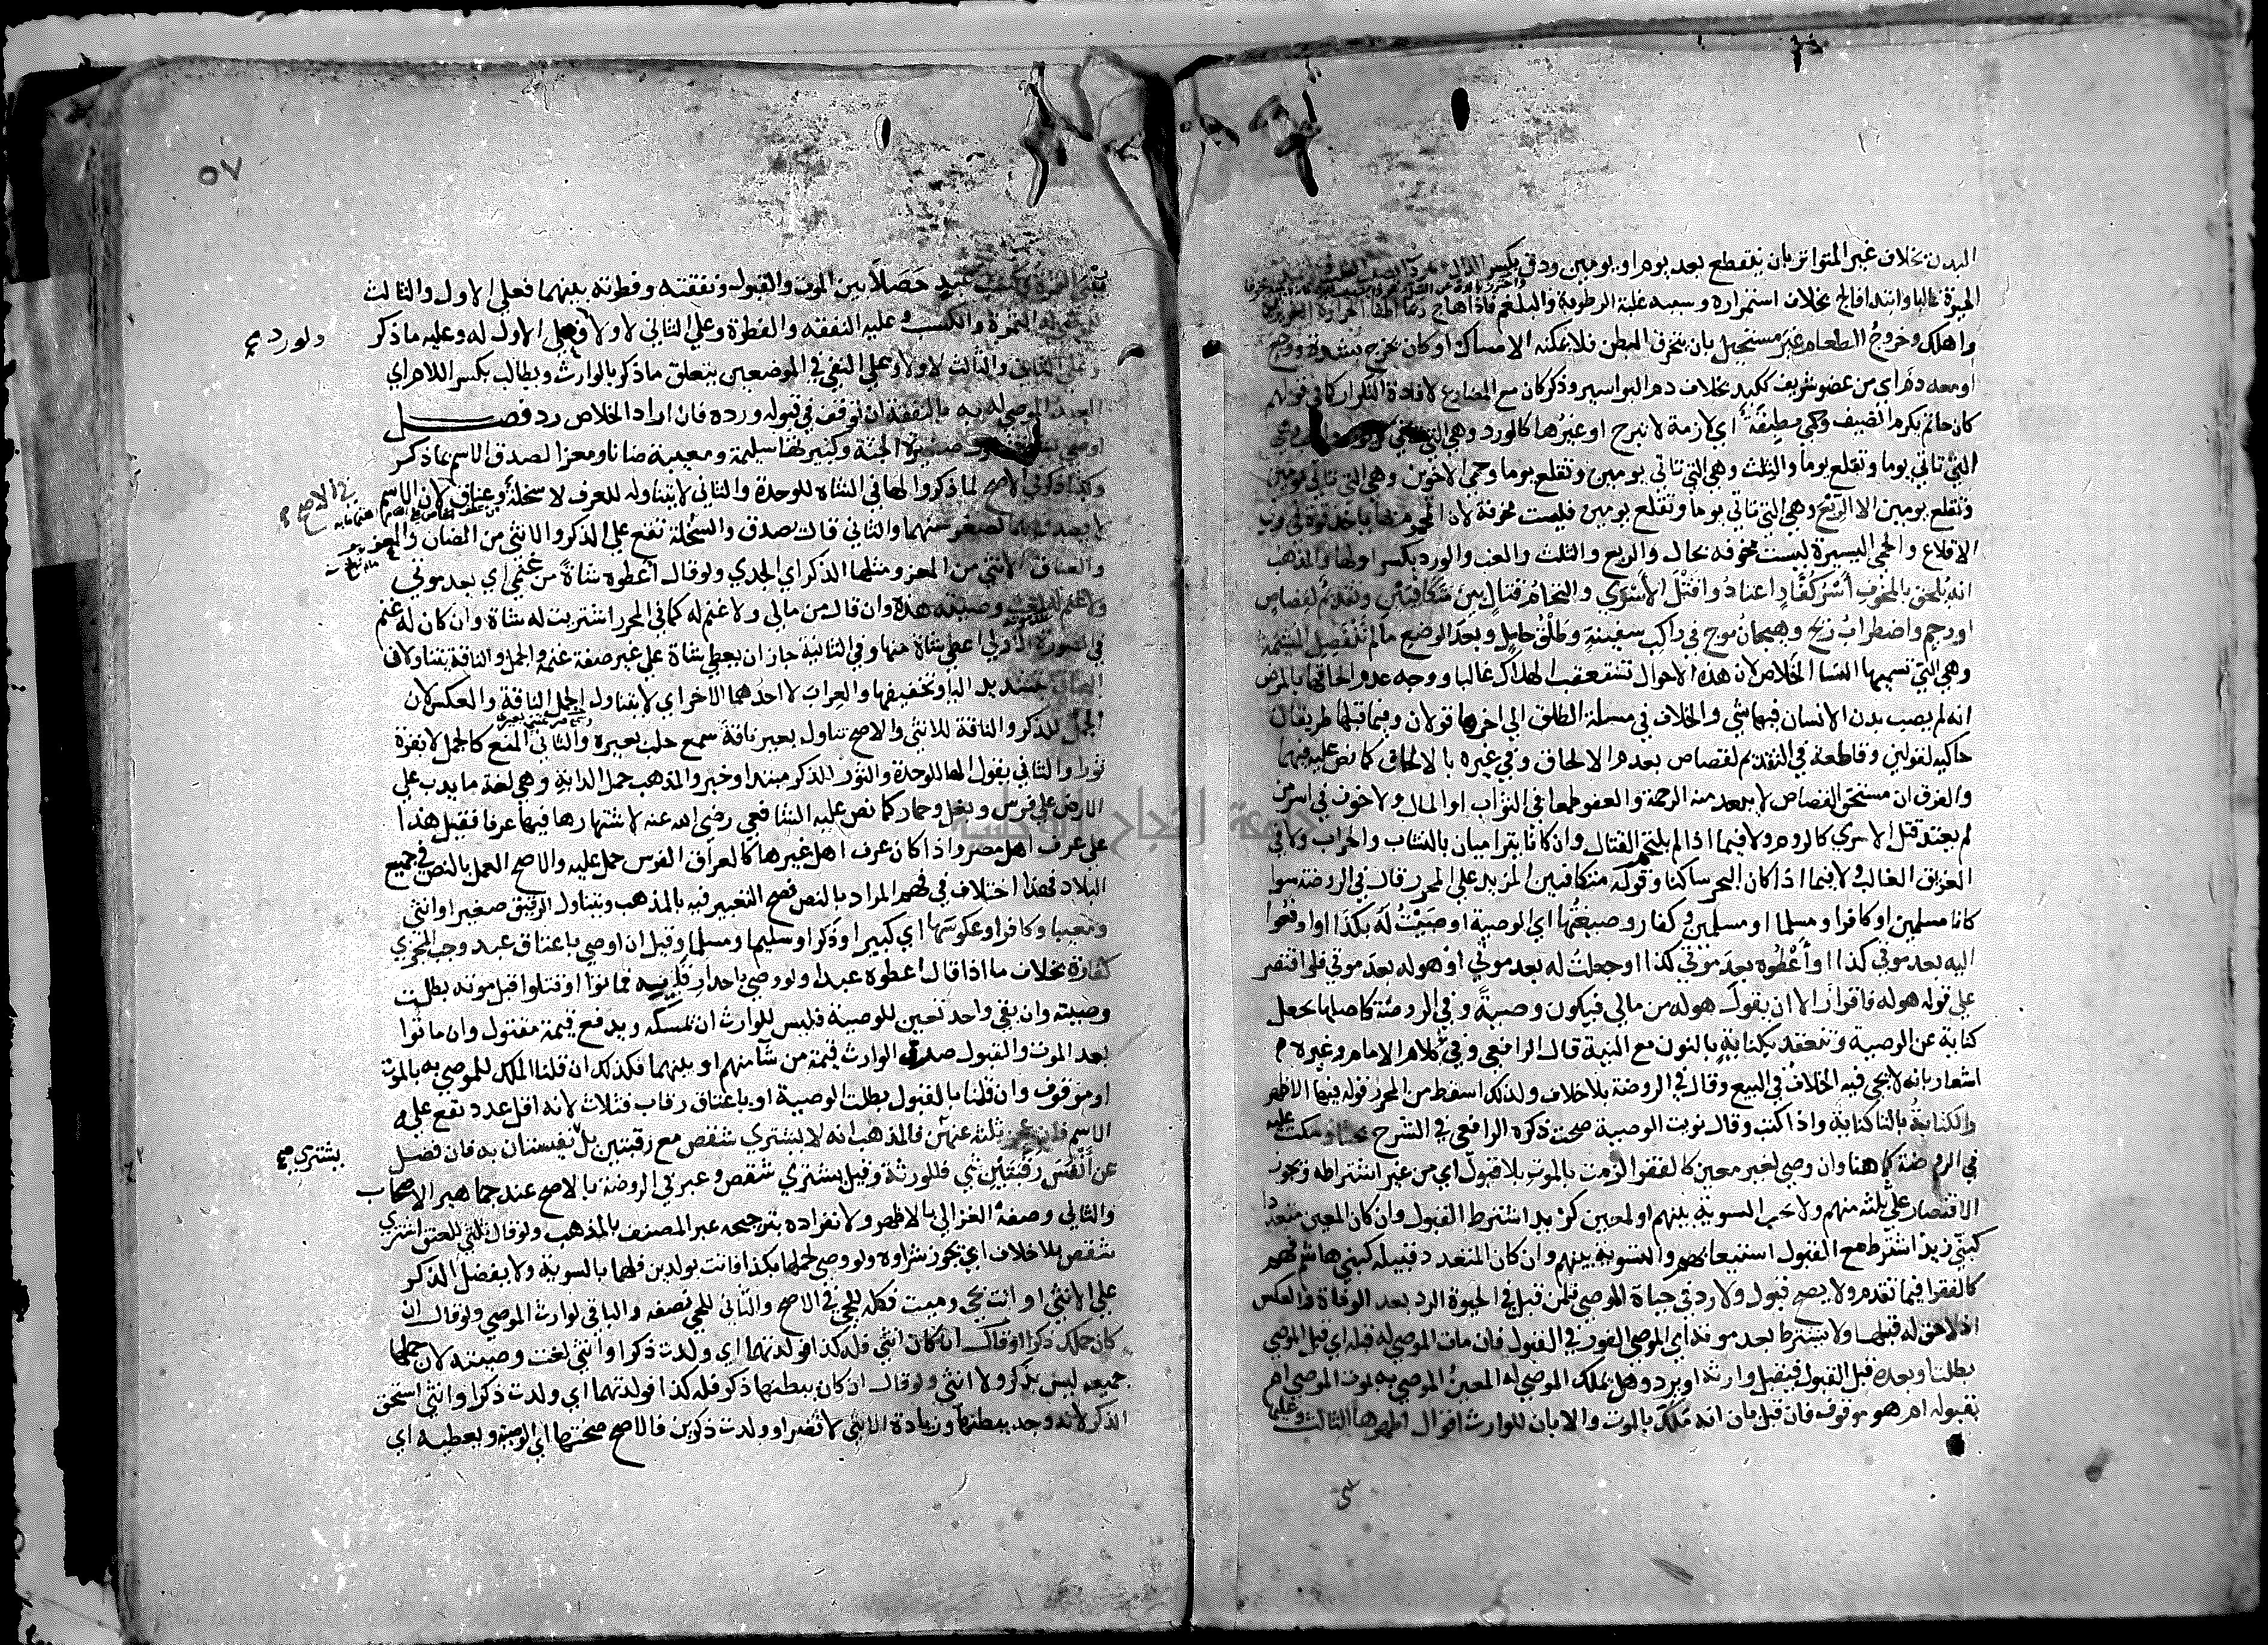 البدن بخلاف غير المتواتر بان ينقطع بعد يوم او يومين ودق بكسر الدال
الحيرة غالبا وابتدا فالج بخلاف استمراره وسببه غلبة الرطوبة والبلغم فاذا هاج ربما اطفا الحرارة الغريزية
واهلك وخروج الطعام غير مستحيل بان يتخرق البطن فلا يمكنه الامساك او كان يخرج بشدة ووجع
او معه دم اي من عضو شريف ككبد بخلاف دم البواسير وذكر كان مع المضارع لافادة التكرار كما في قولهم
كان حاتم يكرم الضيف وحمى مطبقة اي لازمة لا تبرح او غيرها كالورد وهي التي تاتي كل يوم والغب وهي
التي تاتي يوما وتقلع يوما والثلث وهي التي تاتي يومين وتقلع يوما وحمى الاخوين وهي التي تاتي يومين
وتقلع يومين الا الربع وهي التي تاتي يوما وتقلع يومين فليست مخوفة لان المحموم بها ياخذ قوة في يومي
الاقلاع والحمى اليسيرة ليست مخوفه بحال والربع والثلث والغب والورد بكسر اولها والمذهب
انه يلحق بالمخوف اسر كفار اعتادوا قتل الاسرى والتحام قتال بين متكافئين وتقديم لقصاص
او رجم واضطراب ريح وهيجان موج في راكب سفينة وطلق حامل وبعد الوضع ما لم تنفصل المشيمة
وهي التي تسميها النسا الخلاص لان هذه الاحوال تستعقب الهلاك غالبا ووجه عدم الحاقها بالمرض
انه لم يصب بدن الانسان فيها شي والخلاف في مسلة الطلق الى اخرها قولان وفيما قبلها طريقان
حاكية لقولين وقاطعة في التقديم لقصاص بعدم الالحاق وفي غيره بالالحاق كما نص عليه فيهما
والفرق ان مستحق القصاص لا يبعد منه الرحمة والعفو طمعا في الثواب او المال ولا خوف في اسر من
لم يعتد قتل الاسرى كالروم ولا فيما اذا لم يلتحم القتال وان كانا يتراميان بالنشاب والحراب ولا في
الفريق الغالب ولا فيما اذا كان البحر ساكنا وقوله متكافئين المزيد على المحرر قال في الروضة سوا
كانا مسلمين او كافرا ومسلما او مسلمين وكفار وصيغتها اي الوصية اوصيت له بكذا او ادفعوا
اليه بعد موتي كذا او اعطوه بعد موتي كذا او جعلت له بعد موتي او هو له بعد موتي فلو اقتصر
على قوله هو له فاقرار الا ان يقول هو له من مالي فيكون وصية وفي الروضة كاصلها يجعل
كناية عن الوصية وتنعقد بكناية بالنون مع النية قال الرافعي وفي كلام الامام وغيره
اشعار بانه لا يجي فيه الخلاف في البيع وقال في الروضة بلا خلاف ولذلك اسقط من المحرر قوله فيها الاظهر
والكتابة بالتا كناية واذا كتب وقال نويت الوصية صحت ذكره الرافعي في الشرح بحثا وسكت عليه
في الروضة كما هنا وان وصى لغير معين كالفقرا لزمت بالموت بلا قبول اي من غير اشتراطه ويجوز
الاقتصار على ثلثة منهم ولا تجب التسوية بينهم او لمعين كزيد اشترط القبول وان كان المعين متعددا
كبني زيد اشترط مع القبول استيعابهم والتسوية بينهم وان كان المتعدد قبيلة كبني هاشم فهم
كالفقرا فيما تقدم ولا يصح قبول ولا رد في حياة الموصي فلمن قبل في الحيوة الرد بعد الوفاة والعكس
اذ لا حق له قبلها ولا يشترط بعد موته اي الموصي الفور في القبول فان مات الموصى له قبله اي قبل الموصي
بطلت او بعده قبل القبول فيقبل وارثه او يرد وهل يملك الموصى له المعين الموصى به بموت الموصي ام
بقبوله ام هو موقوف فان قبل بان انه ملك بالموت والا بان للوارث اقوال اظهرها الثالث وعليها
٥٧
عبد حصلا بين الموت والقبول ونفقته وفطرته بينهما فعلى الاول والثالث
له الثمرة والكسب وعليه النفقه والفطرة وعلى الثاني لا ولا وعلى الاول له وعليه ما ذكر
ولو رد صح
وعلى الثاني والثالث لا ولا وعلى النفي في الموضعين يتعلق ما ذكر بالوارث ويطالب بكسر اللام اي
العبد الموصى له به بالنفقة ان توقف في قبوله ورده فان اراد الخلاص رد فصل
اوصى بشاة تناول صغيرة الجثة وكبيرتها سليمة ومعيبة ضانا ومعزا لصدق الاسم بما ذكر
وكذا ذكر في الاصح لما ذكر والها في الشاه للوحدة والثاني لا يتناوله للعرف لا سخلة وعناق لان الاسم
في الاصح
لا يصدق بهما لصغر سنهما والثاني قال يصدق والسخلة تقع على الذكر والانثى من الضان والمعز
والعناق الانثى من المعز ومثلها الذكر اي الجدي ولو قال اعطوه شاة من غنمي اي بعد موتي
ولا غنم له لغت وصيته هذه وان قال من مالي ولا غنم له كما في المحرر اشتريت له شاة وان كان له غنم
في الصورة الاولى اعطي شاة منها وفي الثانية جاز ان يعطى شاة على غير صفة غنمه والجمل والناقة يتناولان
البخاتي بتشديد اليا وتخفيفها والعراب لا احدهما الاخر اي لا يتناول الجمل الناقة والعكس لان
الجمل للذكر والناقة للانثى والاصح تناول بعير ناقة سمع حلب بعيره والثاني المنع كالجمل لا بقرة
ثورا والثاني يقول الها للوحدة والثور للذكر مبتدا وخبر والمذهب حمل الدابة وهي لغة ما يدب على
الارض على فرس وبغل وحمار كما نص عليه الشافعي رضي الله عنه لاشتهارها فيها عرفا فقيل هذا
على عرف اهل مصر واذا كان عرف اهل غيرها كالعراق الفرس حمل عليه والاصح العمل بالنص في جميع
البلاد فهذا اختلاف في فهم المراد بالنص فصح التعبير فيه بالمذهب ويتناول الرقيق صغيرا وانثى
ومعيبا وكافرا وعكوسها اي كبيرا وذكرا وسليما ومسلما وقيل ان اوصى باعتاق عبد وجب المجزي
كفارة بخلاف ما اذا قال اعطوه عبدا ولو وصى باحد ارقايه فماتوا او قتلوا قبل موته بطلت
وصيته وان بقي واحد تعين للوصية فليس للوارث ان يمسكه ويدفع قيمة مقتول وان ماتوا
بعد الموت والقبول صرف الوارث قيمة من شا منهم او بينهما فكذلك ان قلنا الملك للموصى به بالموت
او موقوف وان قلنا بالقبول بطلت الوصية او باعتاق رقاب فثلاث لانه اقل عدد تقع عليه
الاسم فان عجز ثلثه عنهن فالمذهب انه لا يشترى شقص مع رقبتين بل نفيستان به فان فضل
يشترى صح
عن انفس رقبتين شي فللورثة وقيل يشترى شقص وعبر في الروضة بالاصح عند جماهير الاصحاب
والثاني وصفه الغزالي بالاظهر ولانفراده بترجيحه عبر المصنف بالمذهب ولو قال ثلثي للعتق اشترى
شقص بلا خلاف اي يجوز شراوه ولو وصى لحملها بكذا فاتت بولدين فلهما بالسوية ولا يفضل الذكر
على الانثى او اتت بحي وميت فكله للحي في الاصح والثاني للحي نصفه والباقي لوارث الموصي ولو قال ان
كان حملك ذكرا او قال ان كان انثى فله كذا فولدتهما اي ولدت ذكرا وانثى لغت وصيته لان حملها
جميعه ليس بذكر ولا انثى ولو قال ان كان ببطنها ذكر فله كذا فولدتهما اي ولدت ذكرا وانثى استحق
الذكر لانه وجد ببطنها وزيادة الانثى لا تضر او ولدت ذكرين فالاصح صحتها اي الوصية ويعطيه اي
جامعة النجاح الوطنية